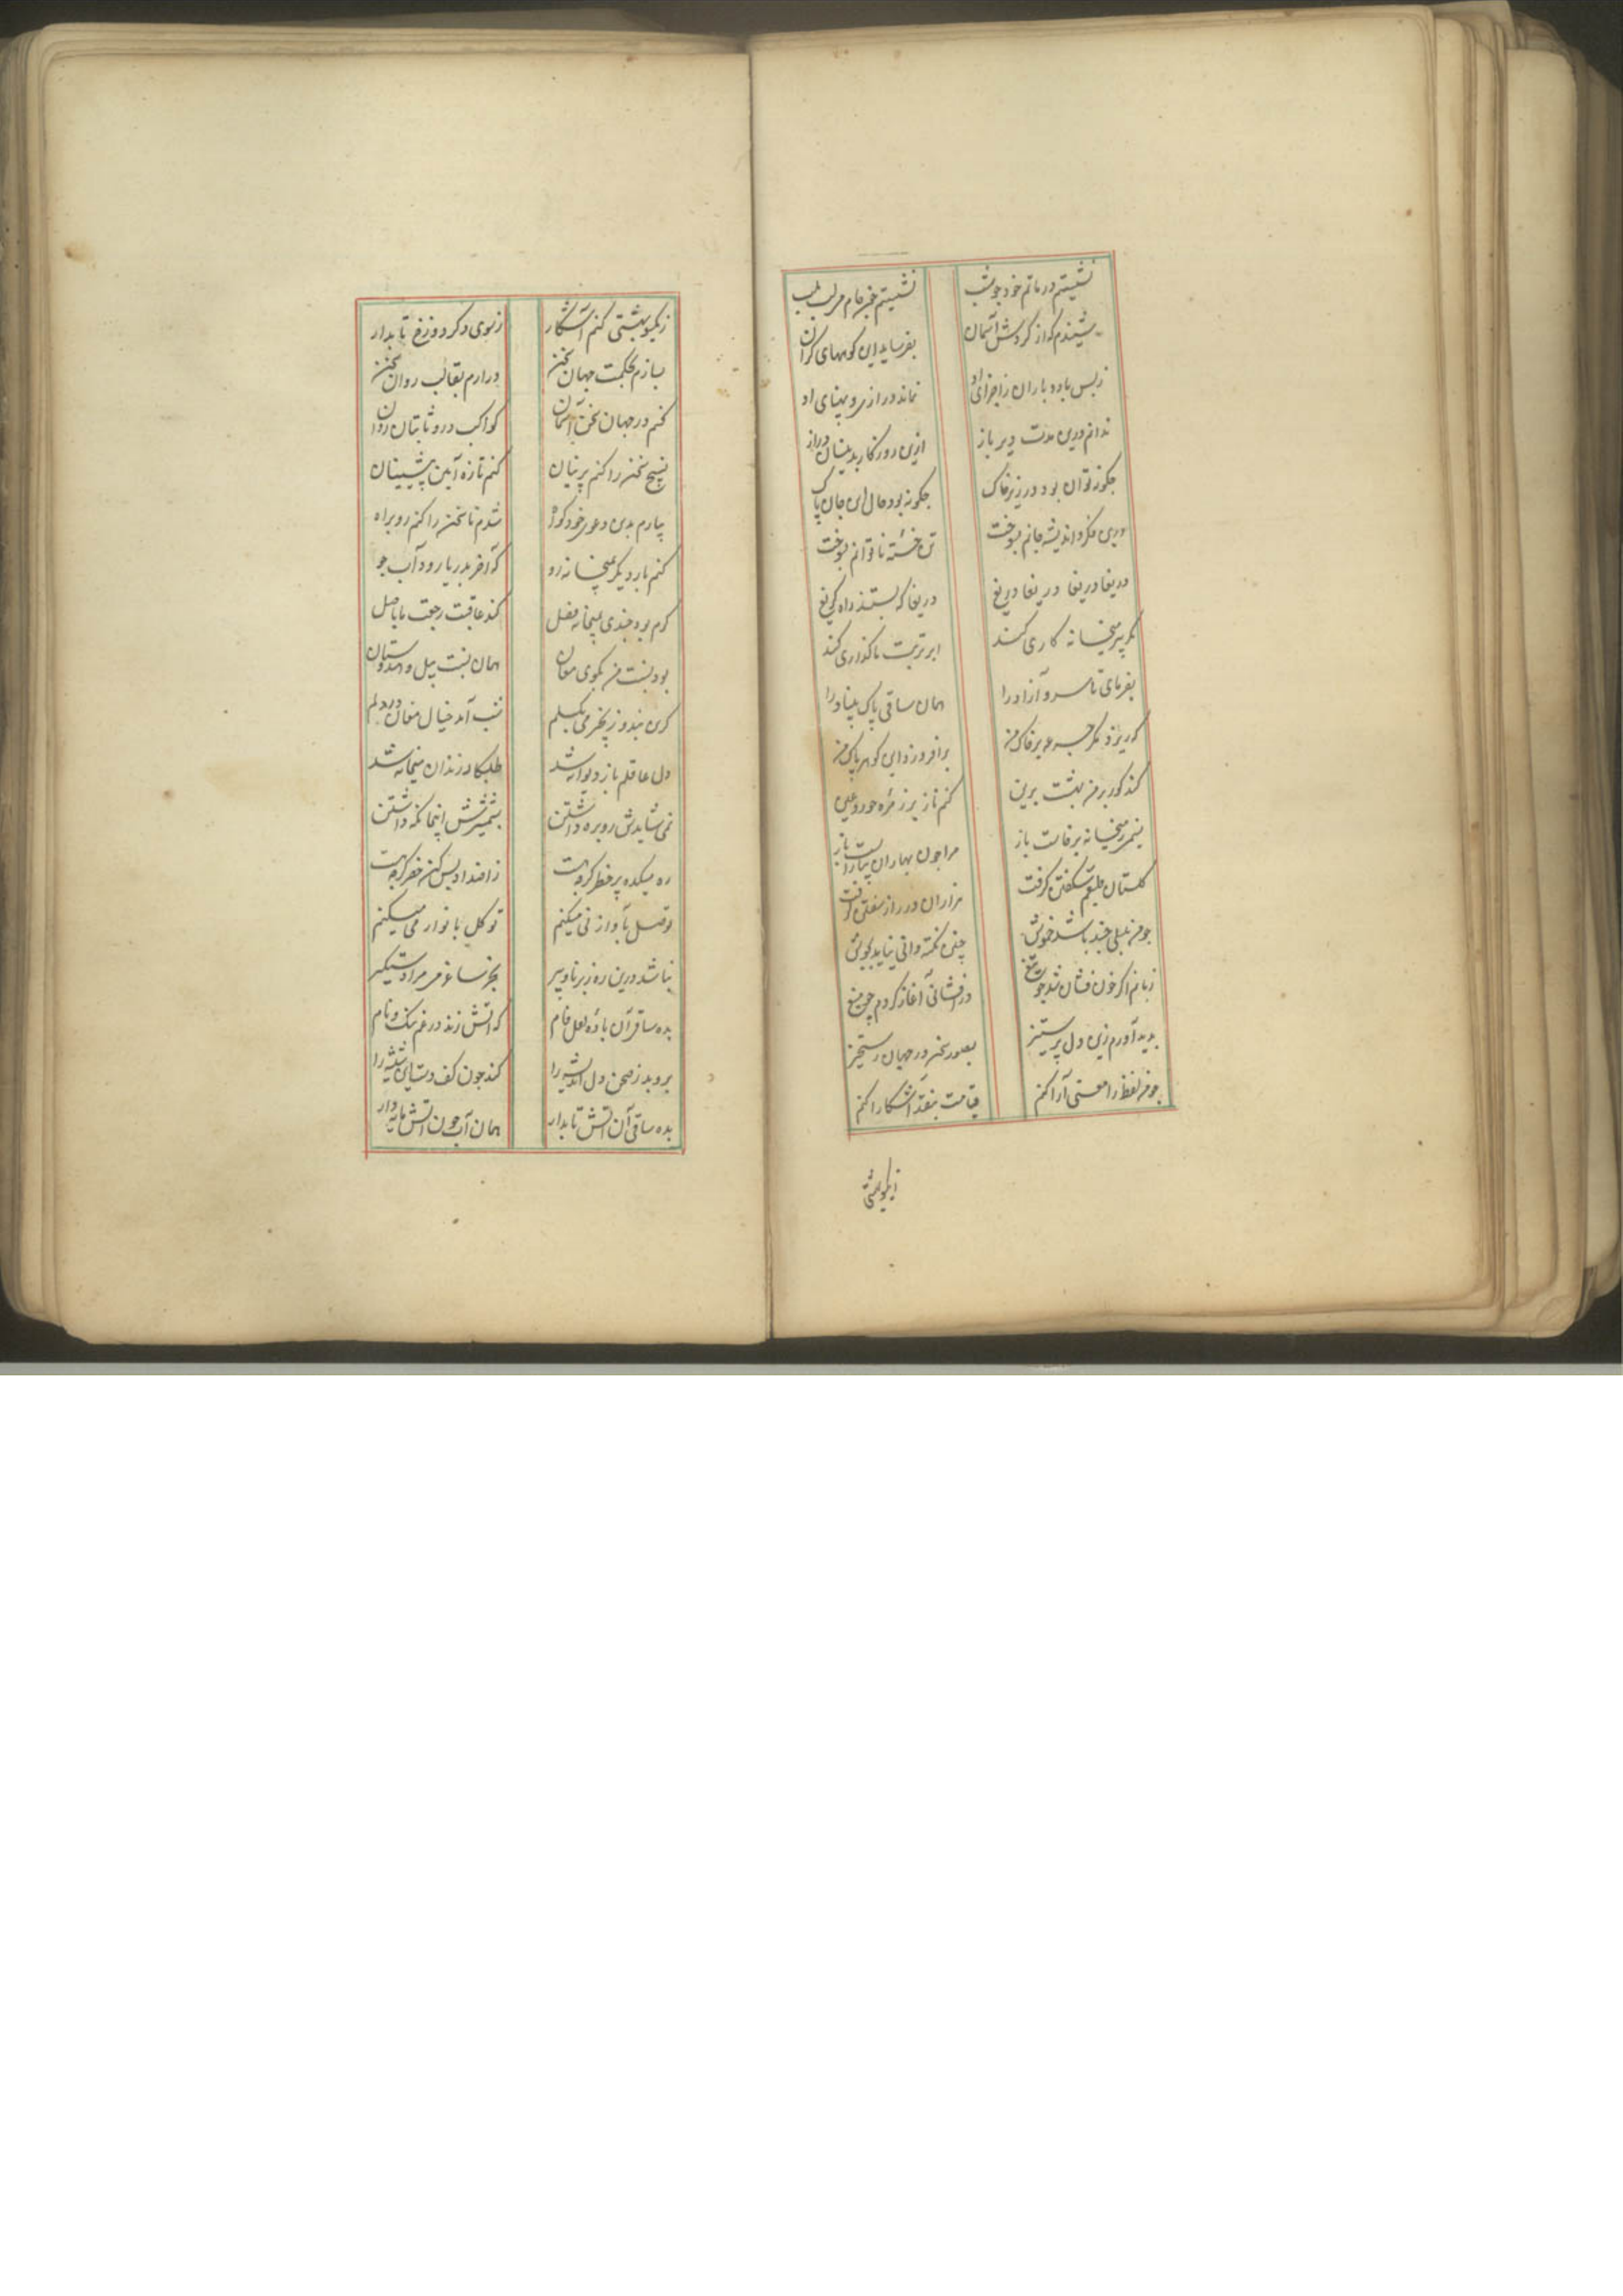 نشستیم در ماتم خود چو شب نشستیم خم جام بر لب
شنیدم که از گردش آسمان بفرساید این کوههای گران
ز بس باد و باران ز اجزای او نماند درازی و پهنای او
ندانم درین مدت دیر باز ازین روزگار بدینسان دراز
چگونه توان بود در زیر خاک چگونه بود حال این جان پاک
درین فکر و اندیشه جانم بسوخت تن خسته ناتوانم بسوخت
دریغا دریغا دریغا دریغ دریغا که بستند راه گریغ
مگر پیر میخانه کاری کند ابر تربت ما گذاری کند
بفرمای تا سرو آزاد را همان ساقی پاک بنیاد را
که ریزد مگر جرعه بر خاک من برافروزد این گوهر پاک من
کند گور بر من بهشت برین کنم ناز بر زمره حور و عین
در میخانه برخاست باز مرا چون بهاران بیاراست باز
گلستان طبعم شکفتن گرفت هزاران در راز سفتن گرفت
چو من بلبلی چند باشد خموش چنین نکته دانی نیاید بجوش
زبانم اگر خون فشان شد چو تیغ درافشانی آغاز کردم چو میغ
پدید آورم زین دل پر ستیز بصور سخن در جهان رستخیز
چو من لفظ را معنی آرا کنم قیامت بنقد آشکارا کنم
ز یکسو بهشتی
ز یکسو بهشتی کنم آشکار ز سوی دگر دوزخ تابدار
بسازم بحکمت جهان سخن درآرم بقالب روان سخن
کنم در جهان سخن آسمان کواکب درو ثابتان روان
نسیج سخن را کنم پرنیان کنم تازه آیین پیشینیان
بیارم بدین دعوی خود گواه شدم تا سخن را کنم روبراه
کنم بار دیگر بمیخانه رو که آخر بدریا رود آب جو
گرم بود چندی بمیخانه فصل کند عاقبت رجعت ما باصل
بود نسبت من بکوی مغان همان نسبت پیل و هندوستان
کزین بند و زنجیر می بگسلم شب آمد خیال مغان در دلم
دل عاقلم باز دیوانه شد طلبکار رندان میخانه شد
نمی شایدش روبره داشتن بشمشیرش اینجا نگه داشتن
ره میکده پر خطر گرچه هست ز امداد پس کن حذر گرچه هست
توسل بآواز نی میکنم توکل بانوار می میکنم
نباشد درین ره ز برنا و پیر بجز ساغر می مرا دستگیر
بده ساقی آن باده لعل فام که آتش زند در غم ننگ و نام
بروبد ز صحن دل اندیشه را کند چون کف دست این شیشه را
بده ساقی آن آتش تابدار همان آب چون آتش مایه دار